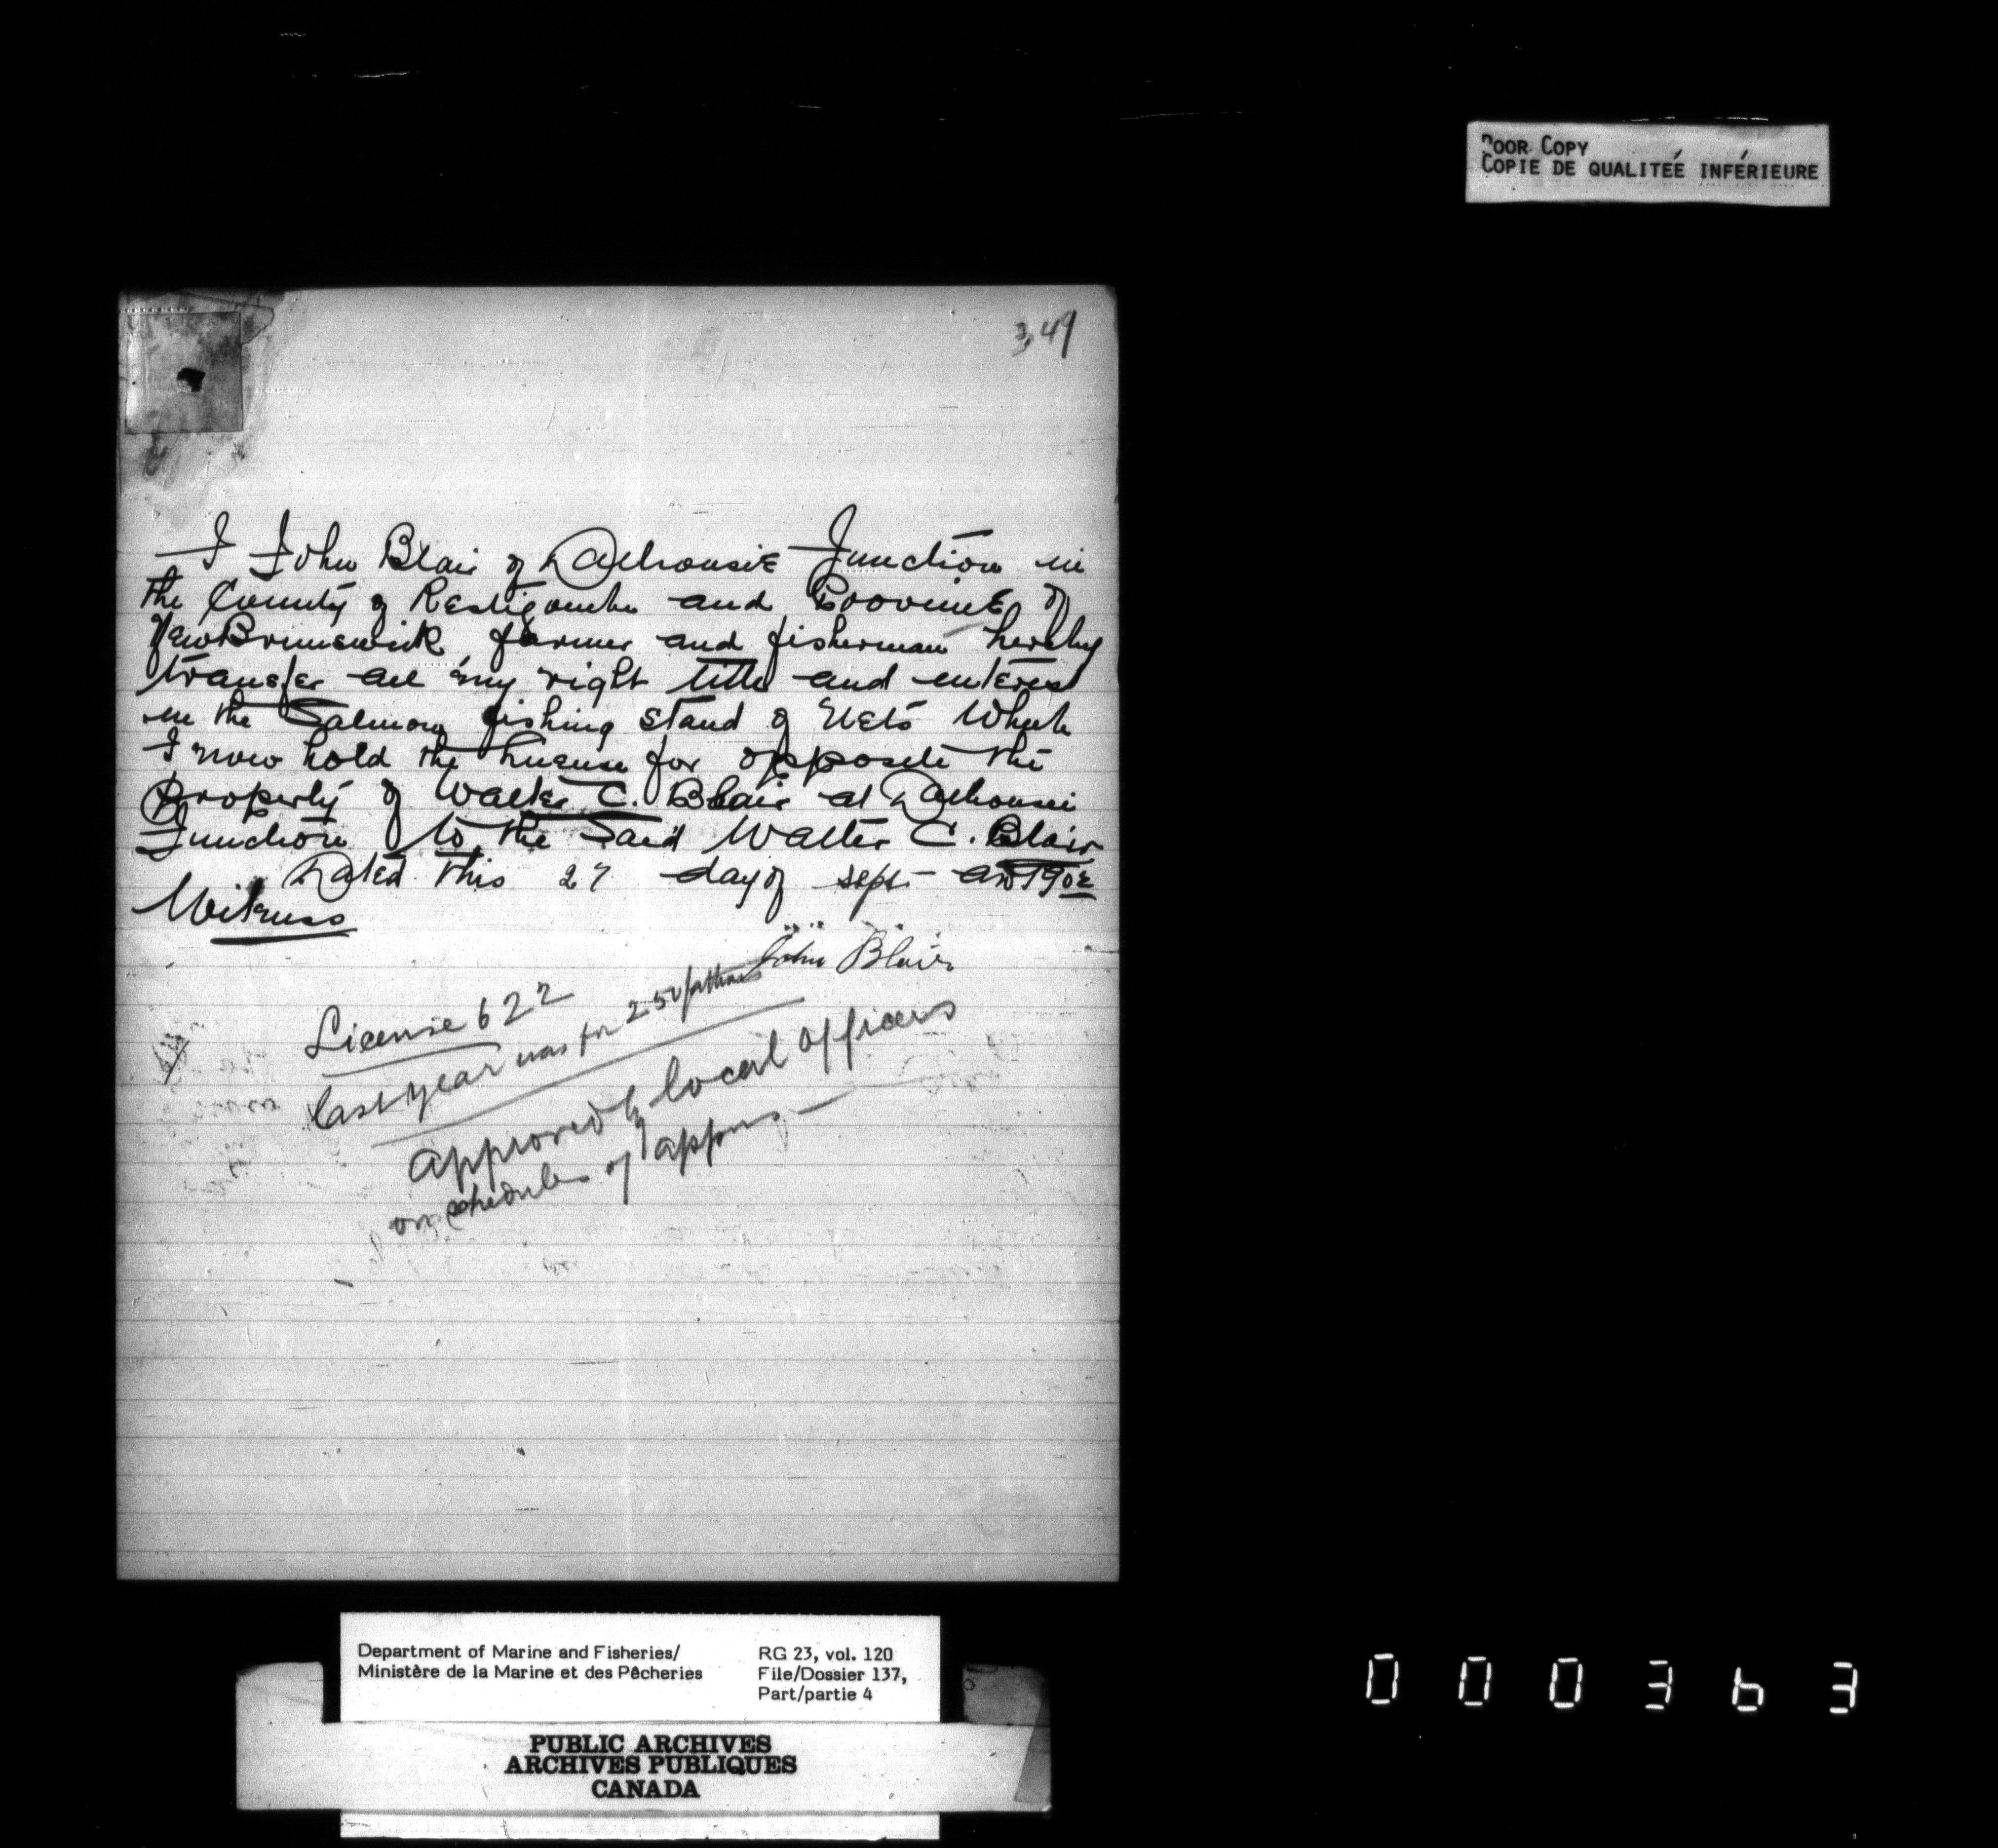 POOR COPY
COPIE DE QUALITEÉ INFÉRIEURE
349
I John Blair of Dalhousie Junction in
the County of Restigouche and Province of
New Brunswick farmer and fisherman hereby
transfer all my right title and interest
in the Salmon fishing stand of Nets which
I now hold the license for opposite the
property of Walter C. Blair at Dalhousie
Junction to the Said Walter C. Blair
Dated this 27 day of sept AD
Witness
John Blair
License 622
last year was for 250 fathoms
approved by local officers
on schedules of appns
Department of Marine and Fisheries/
Ministère de la Marine et des Pêcheries
RG 23, vol. 120
File/Dossier 137,
Part/partie 4
PUBLIC ARCHIVES
ARCHIVES PUBLIQUES
CANADA
000363